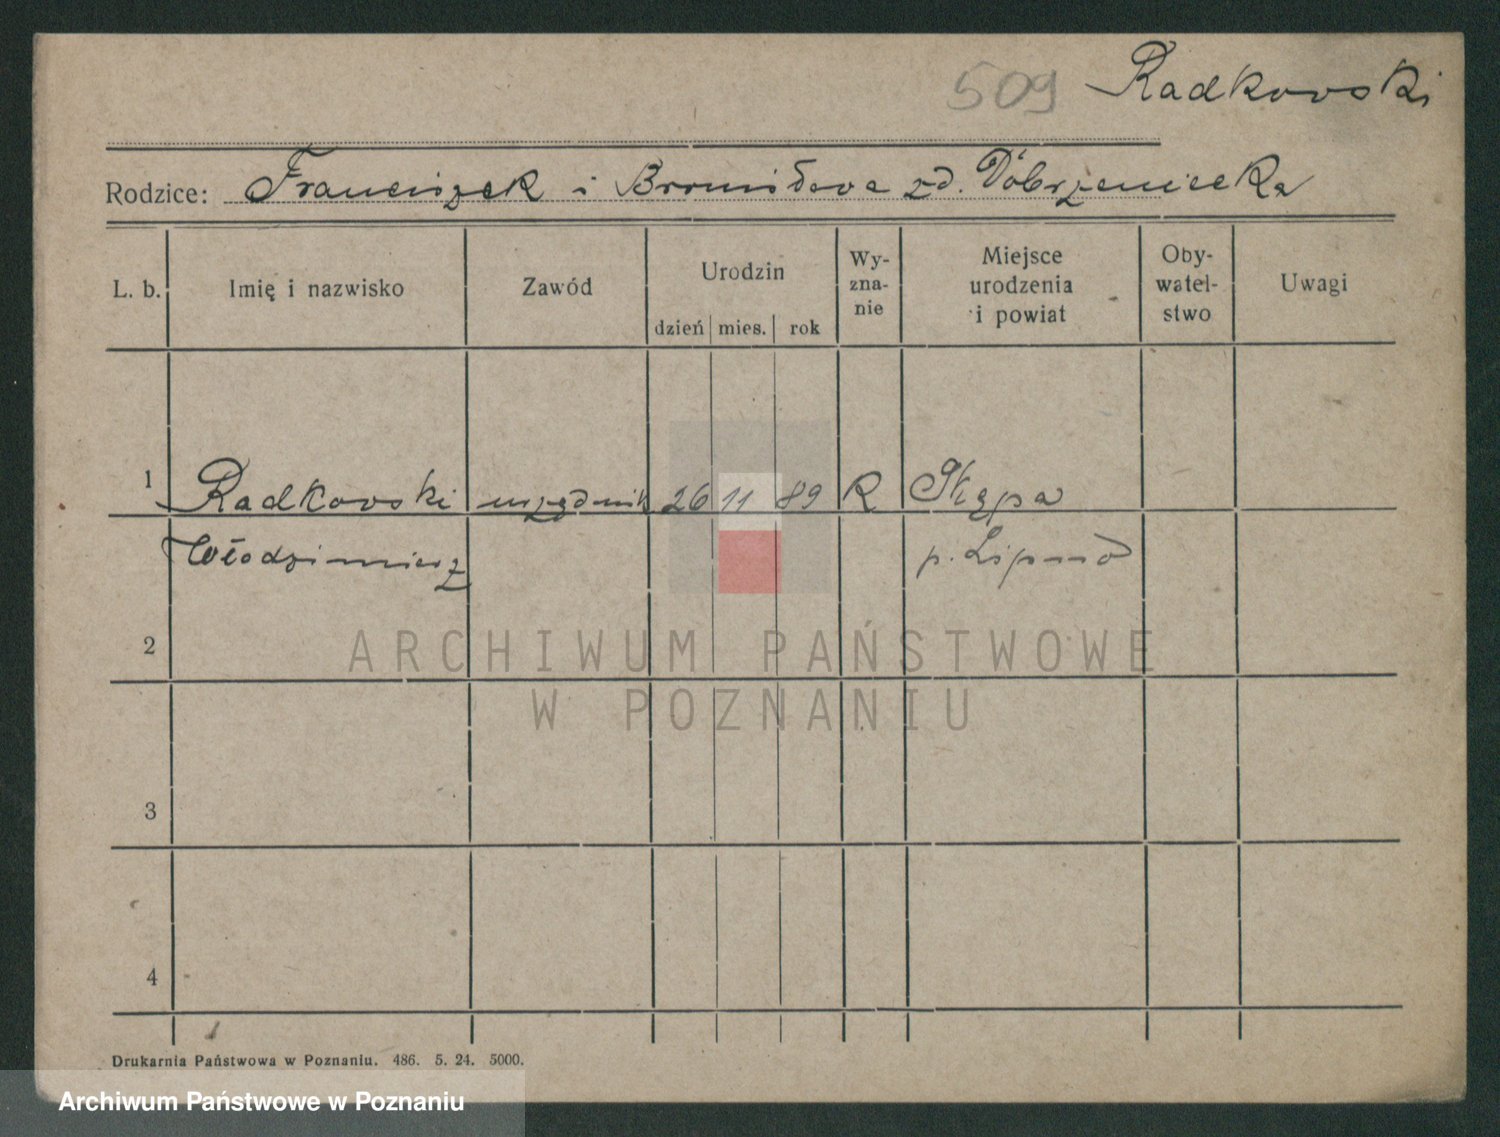 509 Radkowski
Rodzice: Franciszek i Bronisława zd. Dobrzeniecka
L. b. Imię i nazwisko Zawód Urodzin dzień mies. rok Wy-zna-nie Miejsce urodzenia i powiat Oby-watel-stwo Uwagi
1 Radkowski urzędnik 26 11 89 R Skępa
Włodzimierz p. Lipno
2
ARCHIWUM PAŃSTWOWE
W POZNANIU
3
4
Drukarnia Państwowa w Poznaniu. 486. 5. 24. 5000.
Archiwum Państwowe w Poznaniu